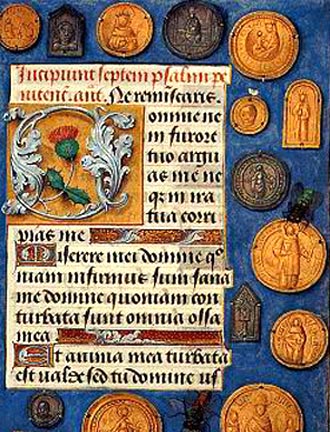 Incipiunt septem psalmi pe
nitenc. ant. Ne remiscaris.
Domine ne
in furore
tuo argu
as me ne
qz in ira
tua corri
pias me
Miserere mei domine qo
niam infirmus sum sana
me domine quoniam con
turbata sunt omnia ossa
mea
Et anima mea turbata
est valde sed tu domine us